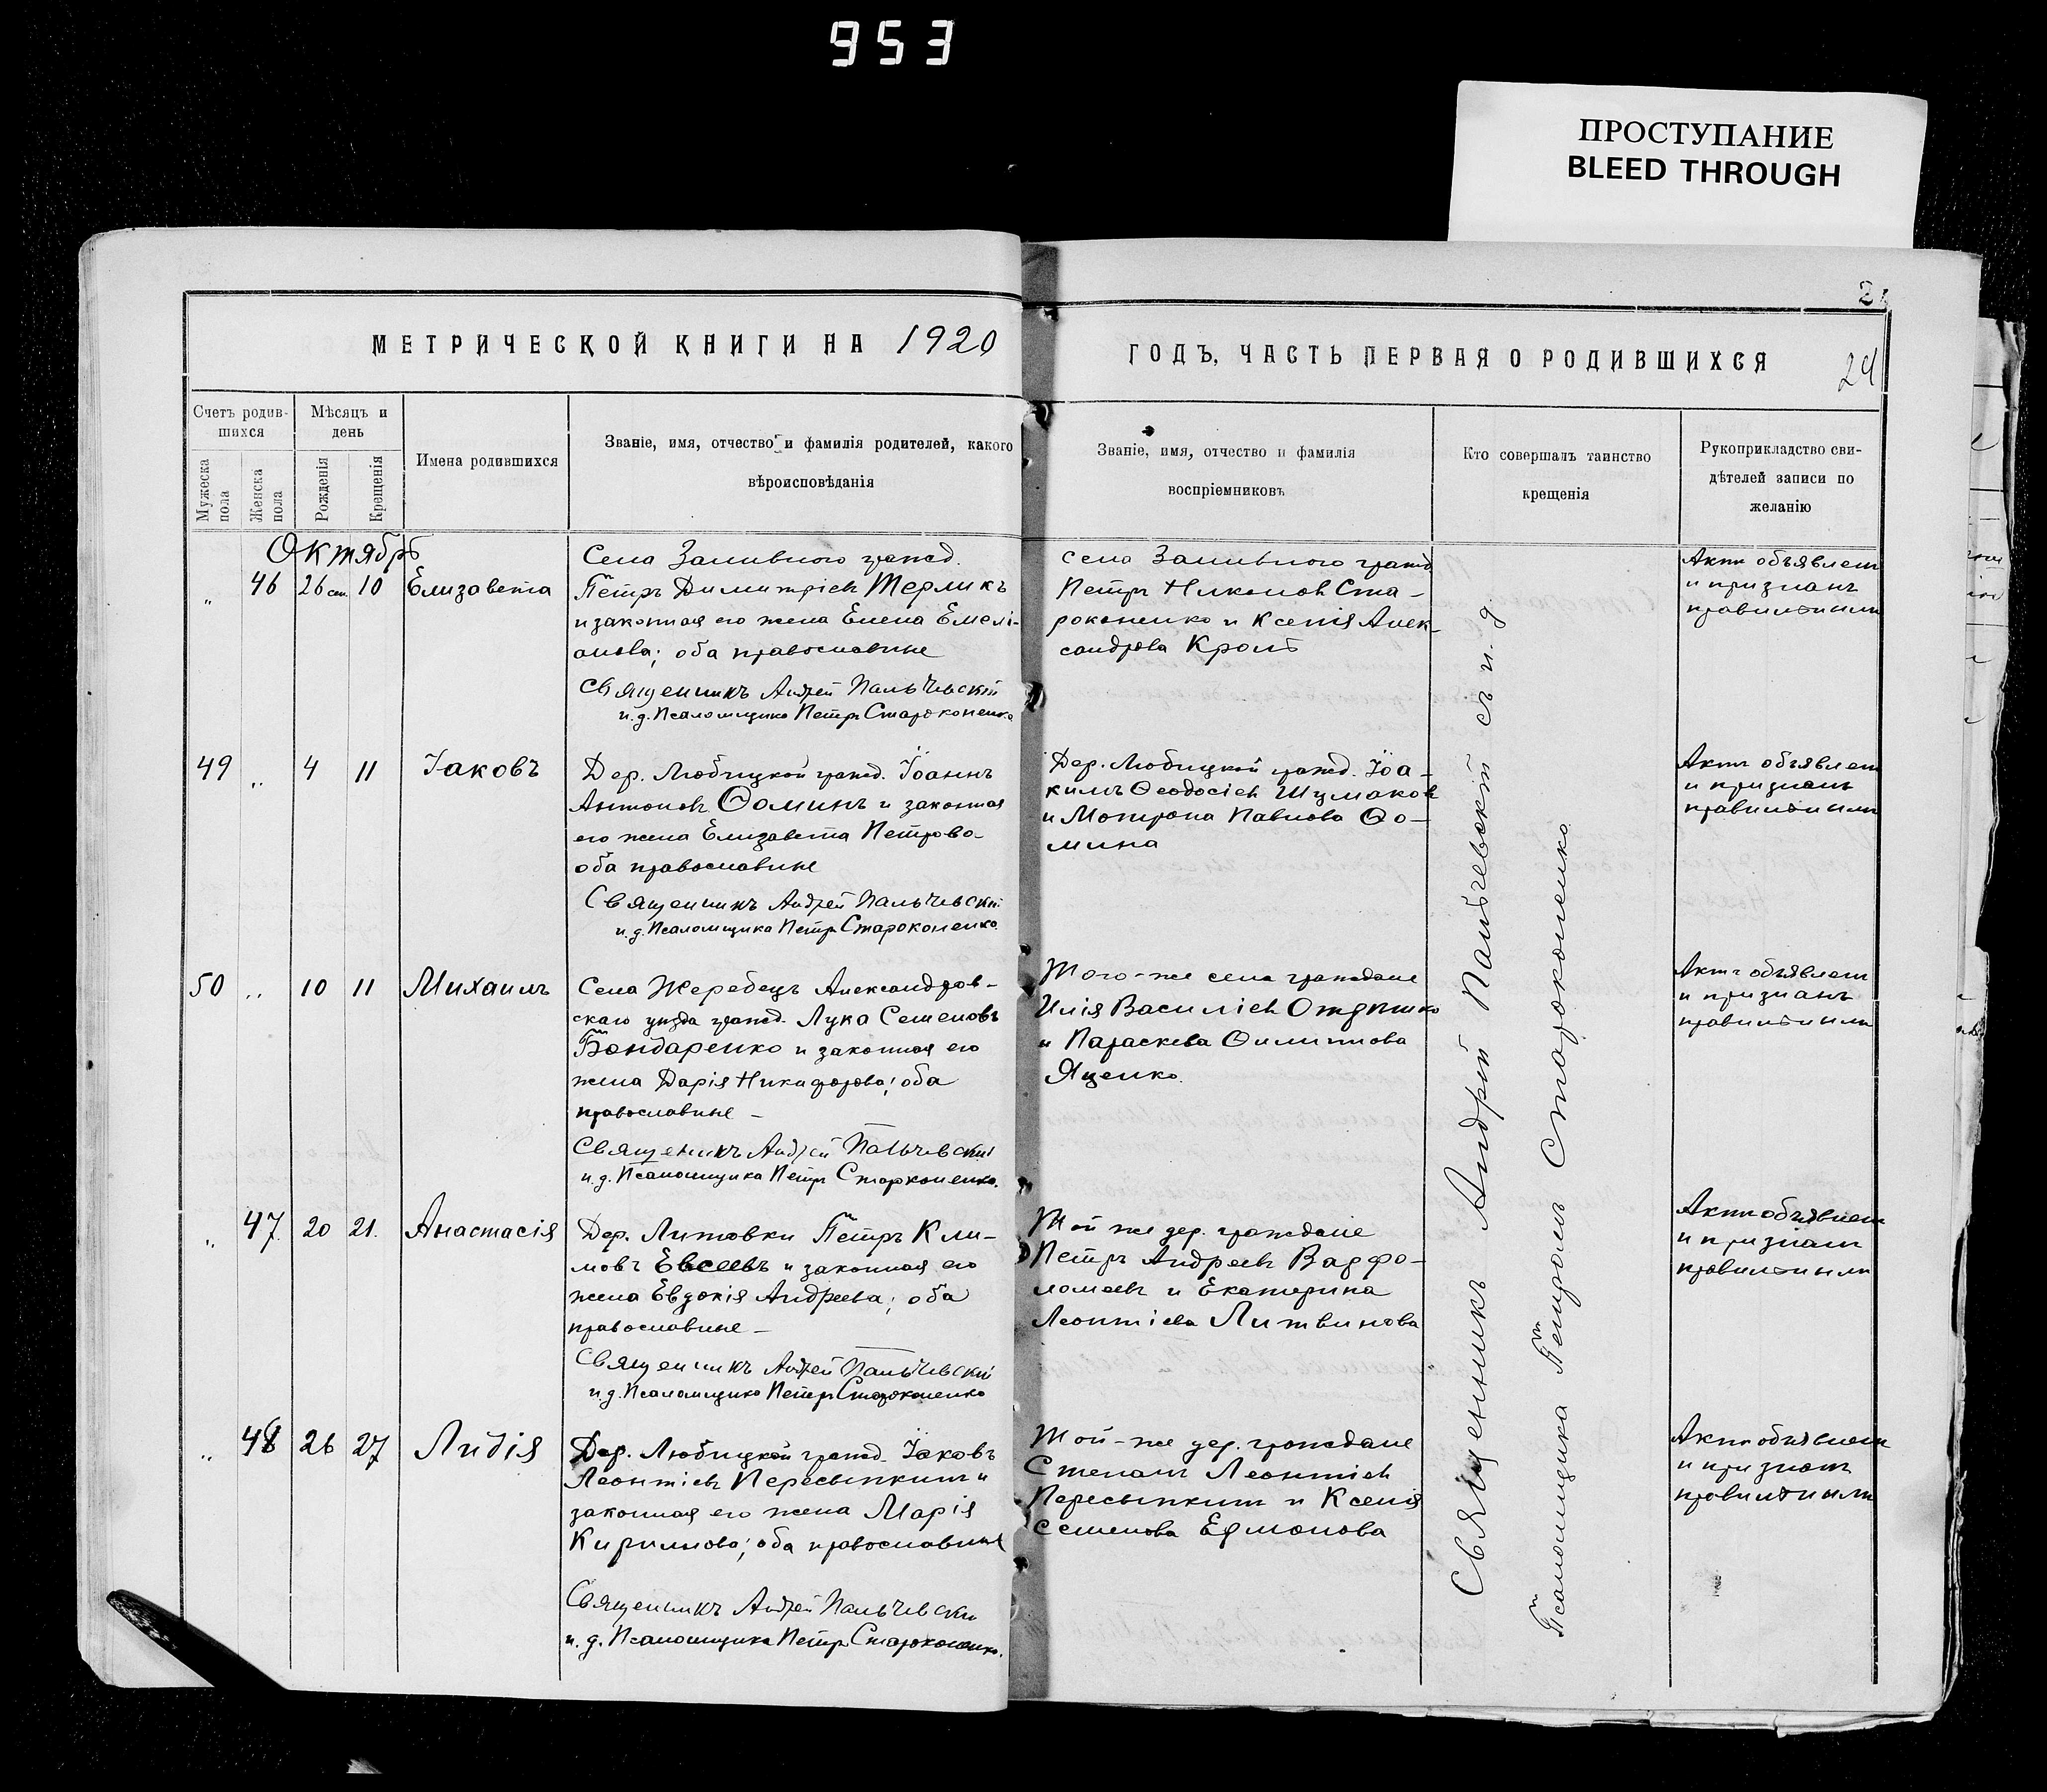 953
ПРОСТУПАНИЕ
BLEED THROUGH
МЕТРИЧЕСКОЙ КНИГИ НА 1920
ГОДЪ, ЧАСТЬ ПЕРВАЯ О РОДИВШИХСЯ
24
Счетъ родив-
шихся
Мужеска
пола
Женска
пола
Мѣсяцъ и
день
Рожденія
Крещенія
Имена родившихся
Званіе, имя, отчество и фамилія родителей, какого
вѣроисповѣданія
Званіе, имя, отчество и фамилія
воспріемниковъ
Кто совершалъ таинство
крещенія
Рукоприкладство сви-
дѣтелей записи по
желанію
Октябрь
„ 46 26 сен. 10 Елизавета
Села Заливного гражд.
Петръ Димитріевъ Терликъ
и законная его жена Елена Емелі-
анова; оба православные
Священникъ Андрей Пальчевскій
и.д. Псаломщика Петръ Староконенко
села Заливного гражд.
Петръ Никоновъ Ста-
роконенко и Ксенія Алек-
сандрова Кроль
Актъ объявленъ
и признанъ
правильнымъ
49 „ 4 11 Іаковъ
Дер. Любицкой гражд. Іоаннъ
Антоновъ Ѳоминъ и законная
его жена Елизавета Петрова
оба православные
Священникъ Андрей Пальчевскій
и.д. Псаломщика Петръ Староконенко
Дер. Любицкой гражд. Іоа-
кимъ Ѳеодосіевъ Шумаковъ
и Матрона Павлова Ѳо-
мина
Актъ объявленъ
и признанъ
правильнымъ
50 „ 10 11 Михаилъ
Села Жеребецъ Александров-
скаго уѣзда гражд. Лука Семеновъ
Бондаренко и законная его
жена Дарія Никифорова; оба
православные —
Священникъ Андрей Пальчевскій
и.д. Псаломщика Петръ Староконенко.
Того-же села граждане
Илія Василіевъ
и Параскева Филиппова
Яценко.
Актъ объявленъ
и признанъ
правильнымъ
„ 47. 20 21. Анастасія
Дер. Литовки Петръ Кли-
мовъ Евсеевъ и законная его
жена Евдокія Андреева; оба
православные —
Священникъ Андрей Пальчевскій
и.д. Псаломщика Петръ Староконенко
Той же дер. граждане
Петръ Андреевъ Варфо-
ломеевъ и Екатерина
Леонтіева Литвинова
Актъ объявленъ
и признанъ
правильнымъ
„ 48 26 27 Лидія
Дер. Любицкой гражд. Іаковъ
Леонтіевъ Пересыпкинъ и
законная его жена Марія
Кирилова; оба православные
Священникъ Андрей Пальчевскій
и.д. Псаломщика Петръ Староконенко.
Той-же дер. граждане
Степанъ Леонтіевъ
Пересыпкинъ и Ксенія
Семенова
Актъ объявленъ
и признанъ
правильнымъ
Священникъ Андрей Пальчевскій съ и.д.
Псаломщика Петромъ Староконенко